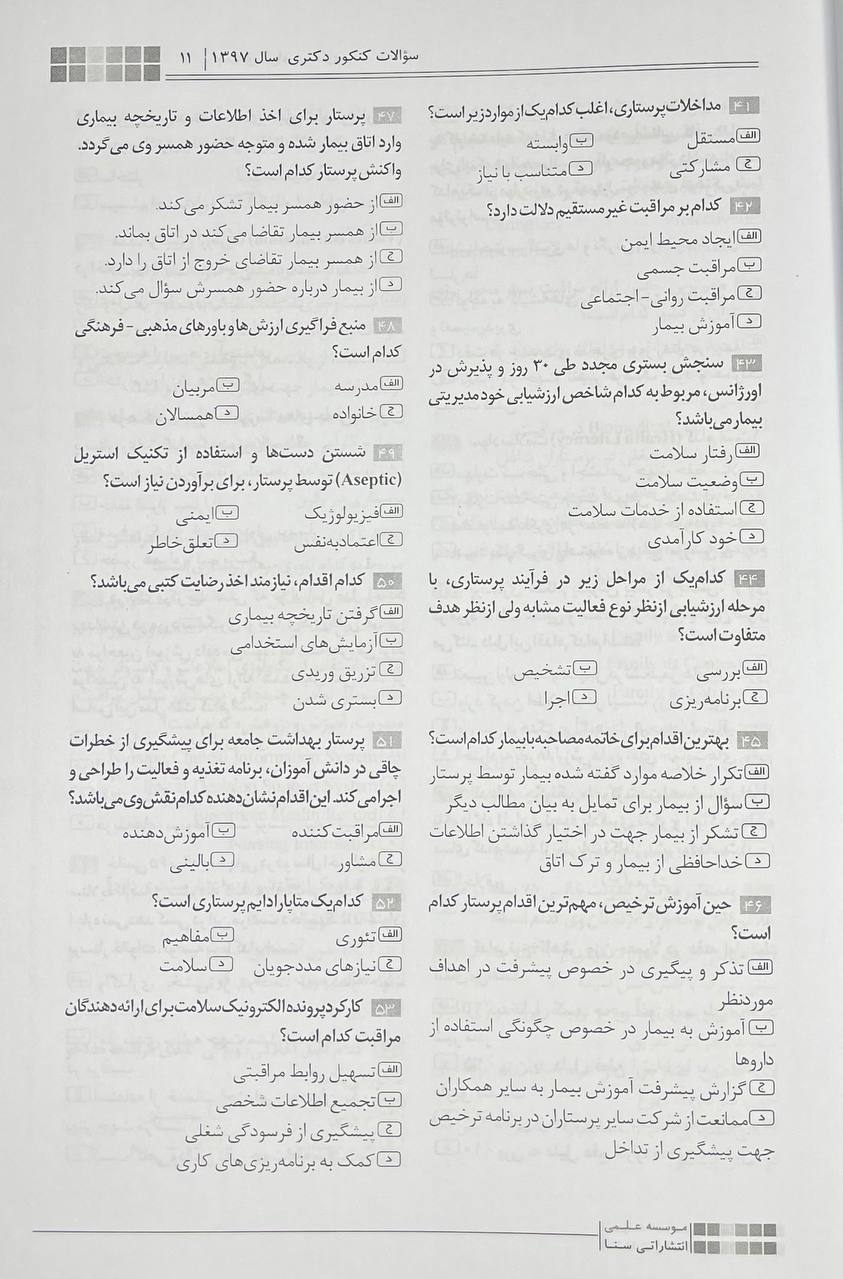 سؤالات کنکور دکتری سال ۱۳۹۷ | ۱۱
۴۱ مداخلات پرستاری، اغلب کدام‌یک از موارد زیر است؟
الف مستقل ب وابسته
ج مشارکتی د متناسب با نیاز
۴۲ کدام بر مراقبت غیرمستقیم دلالت دارد؟
الف ایجاد محیط ایمن
ب مراقبت جسمی
ج مراقبت روانی-اجتماعی
د آموزش بیمار
۴۳ سنجش بستری مجدد طی ۳۰ روز و پذیرش در
اورژانس، مربوط به کدام شاخص ارزشیابی خود مدیریتی
بیمار می‌باشد؟
الف رفتار سلامت
ب وضعیت سلامت
ج استفاده از خدمات سلامت
د خود کارآمدی
۴۴ کدام‌یک از مراحل زیر در فرآیند پرستاری، با
مرحله ارزشیابی ازنظر نوع فعالیت مشابه ولی ازنظر هدف
متفاوت است؟
الف بررسی ب تشخیص
ج برنامه‌ریزی د اجرا
۴۵ بهترین اقدام برای خاتمه مصاحبه با بیمار کدام است؟
الف تکرار خلاصه موارد گفته شده بیمار توسط پرستار
ب سؤال از بیمار برای تمایل به بیان مطالب دیگر
ج تشکر از بیمار جهت در اختیار گذاشتن اطلاعات
د خداحافظی از بیمار و ترک اتاق
۴۶ حین آموزش ترخیص، مهم‌ترین اقدام پرستار کدام
است؟
الف تذکر و پیگیری در خصوص پیشرفت در اهداف
موردنظر
ب آموزش به بیمار در خصوص چگونگی استفاده از
داروها
ج گزارش پیشرفت آموزش بیمار به سایر همکاران
د ممانعت از شرکت سایر پرستاران در برنامه ترخیص
جهت پیشگیری از تداخل
۴۷ پرستار برای اخذ اطلاعات و تاریخچه بیماری
وارد اتاق بیمار شده و متوجه حضور همسر وی می‌گردد.
واکنش پرستار کدام است؟
الف از حضور همسر بیمار تشکر می‌کند.
ب از همسر بیمار تقاضا می‌کند در اتاق بماند.
ج از همسر بیمار تقاضای خروج از اتاق را دارد.
د از بیمار درباره حضور همسرش سؤال می‌کند.
۴۸ منبع فراگیری ارزش‌ها و باورهای مذهبی - فرهنگی
کدام است؟
الف مدرسه ب مربیان
ج خانواده د همسالان
۴۹ شستن دست‌ها و استفاده از تکنیک استریل
(Aseptic) توسط پرستار، برای برآوردن نیاز است؟
الف فیزیولوژیک ب ایمنی
ج اعتماد به نفس د تعلق خاطر
۵۰ کدام اقدام، نیازمند اخذ رضایت کتبی می‌باشد؟
الف گرفتن تاریخچه بیماری
ب آزمایش‌های استخدامی
ج تزریق وریدی
د بستری شدن
۵۱ پرستار بهداشت جامعه برای پیشگیری از خطرات
چاقی در دانش آموزان، برنامه تغذیه و فعالیت را طراحی و
اجرا می‌کند. این اقدام نشان‌دهنده کدام نقش وی می‌باشد؟
الف مراقبت‌کننده ب آموزش‌دهنده
ج مشاور د بالینی
۵۲ کدام‌یک متاپارادایم پرستاری است؟
الف تئوری ب مفاهیم
ج نیازهای مددجویان د سلامت
۵۳ کارکرد پرونده الکترونیک سلامت برای ارائه‌دهندگان
مراقبت کدام است؟
الف تسهیل روابط مراقبتی
ب تجمیع اطلاعات شخصی
ج پیشگیری از فرسودگی شغلی
د کمک به برنامه‌ریزی‌های کاری
موسسه علمی
انتشاراتی سنا